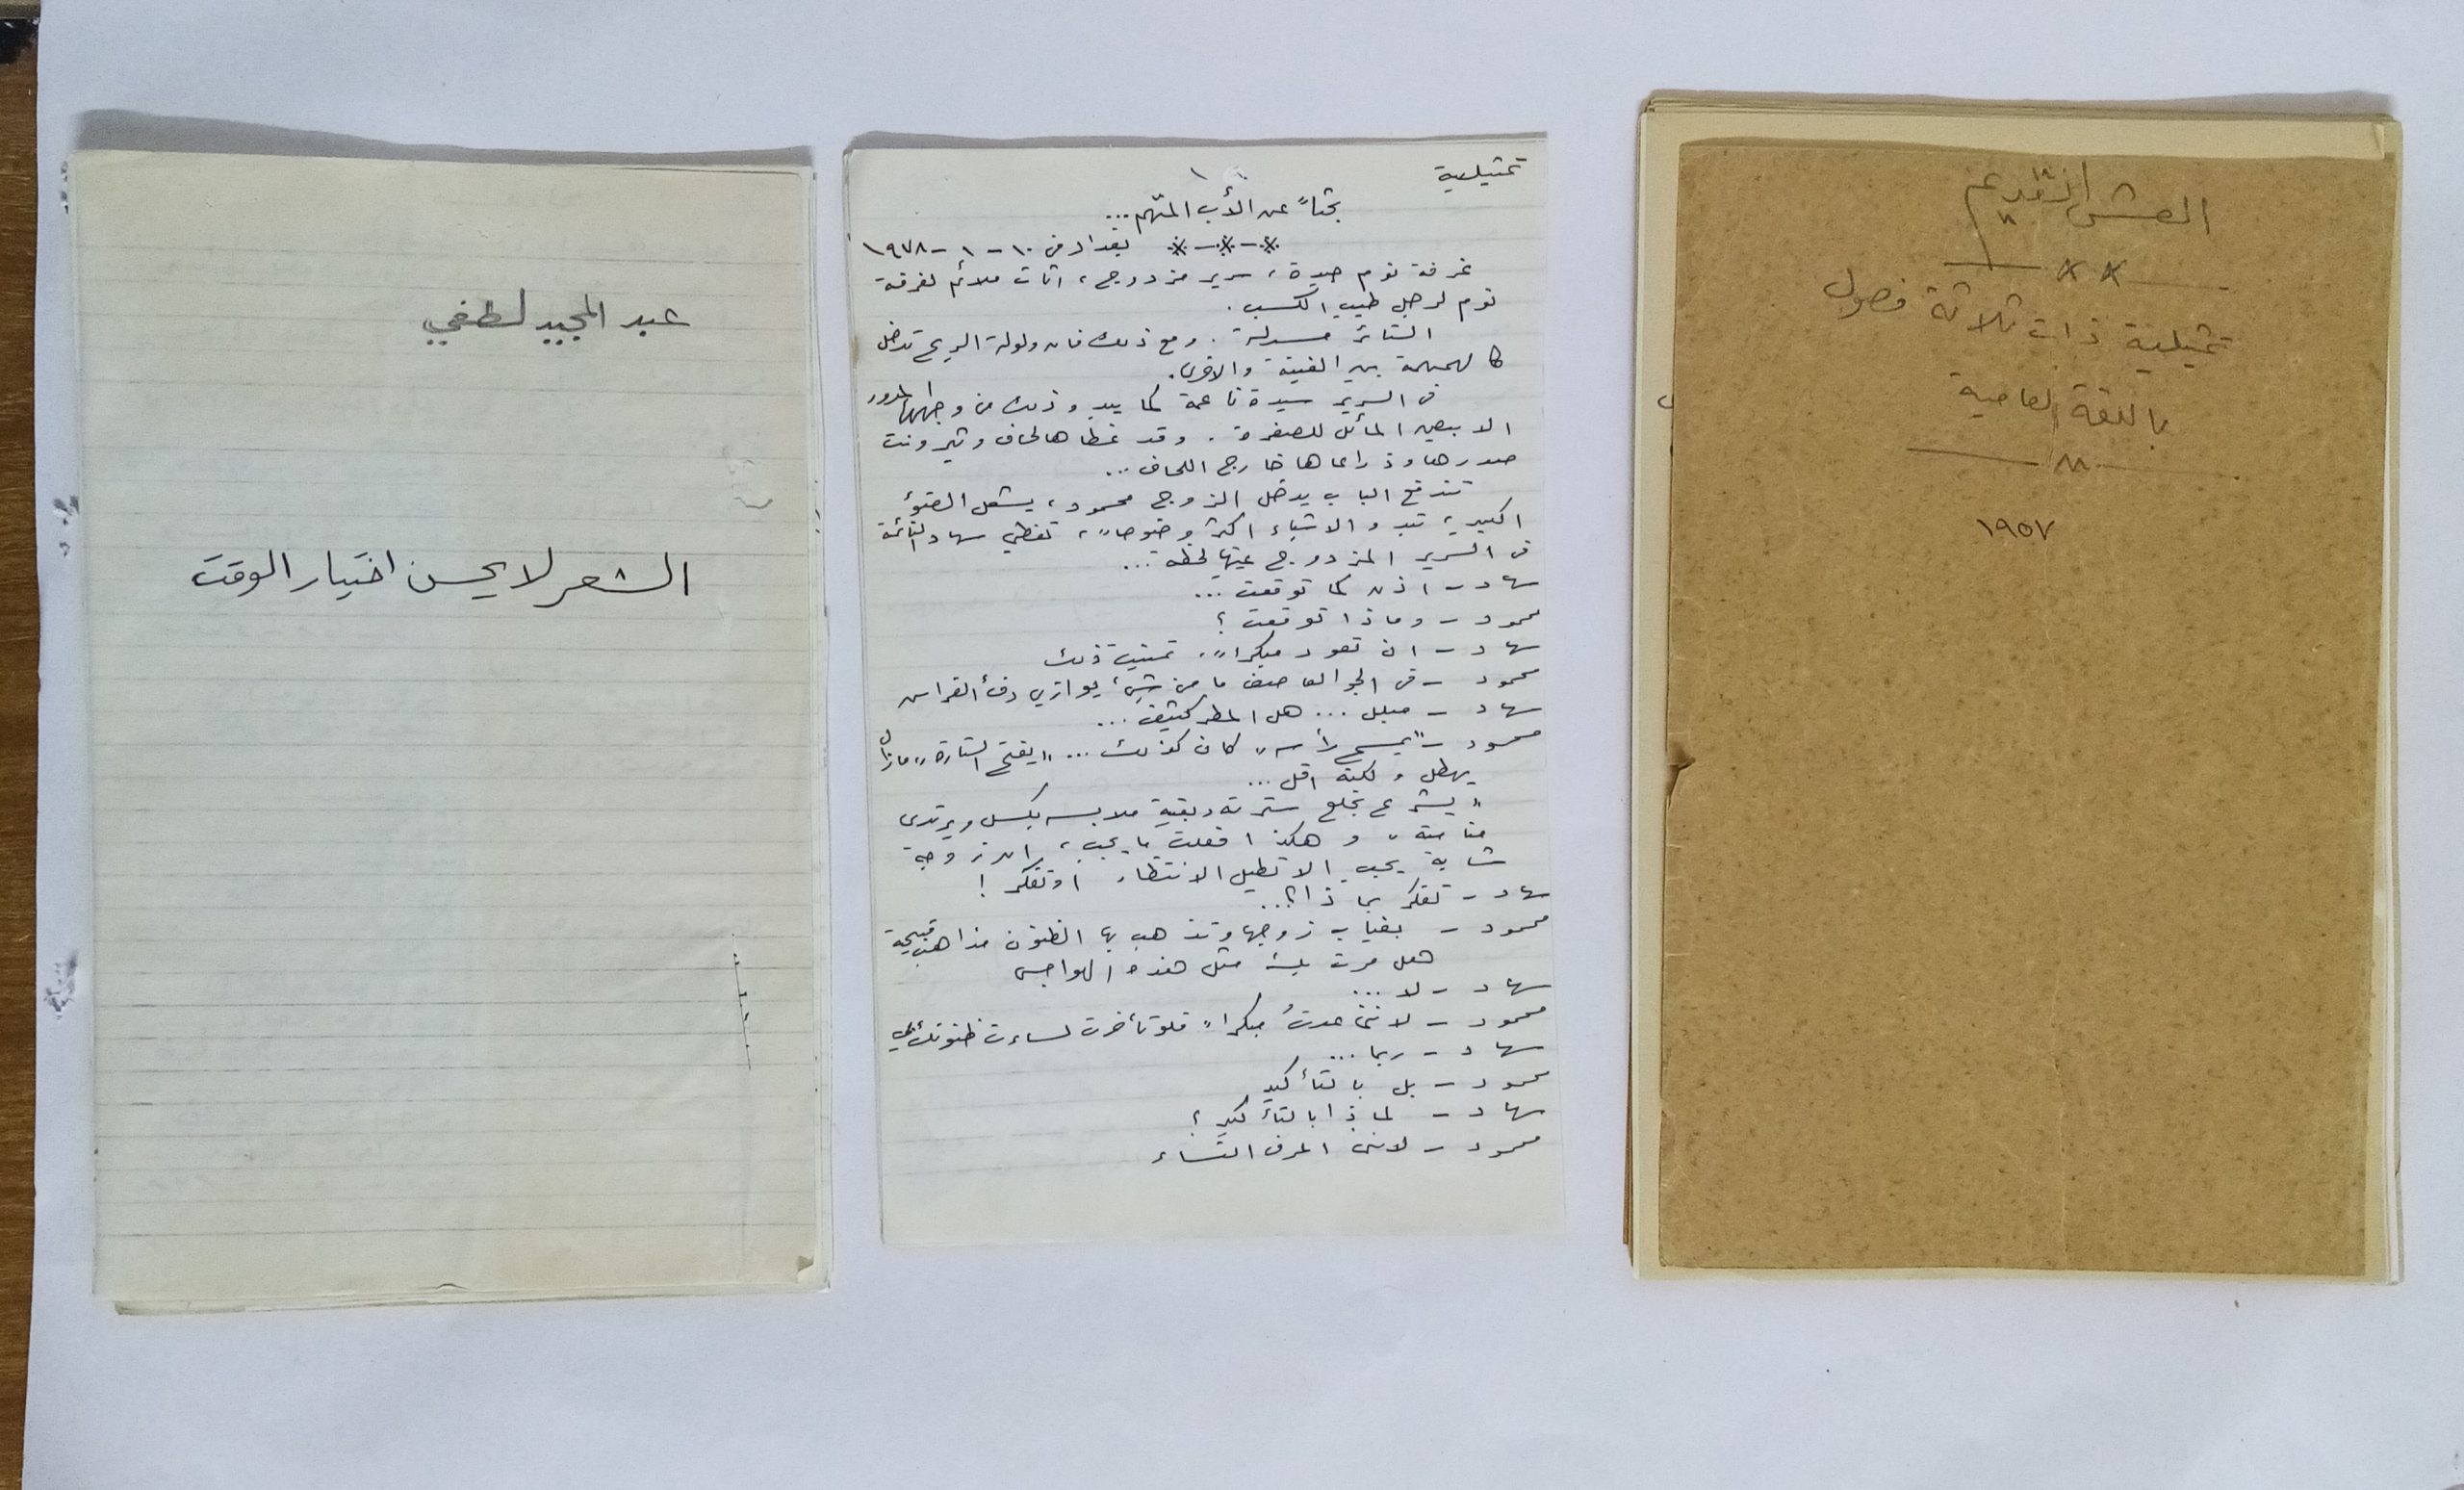 العش القديم
تمثيلية ذات ثلاثة فصول
باللغة العامية
١٩٥٧
تمثيلية
١
بحثاً عن الأب المتهم...
بغداد في ١٠ - ١ - ١٩٧٨
غرفة نوم جيدة، سرير مزدوج، اثاث ملائم لغرفة
نوم لرجل طيب الكسب.
الستائر مسدلة. ومع ذلك فان ولولة الريح تدخل
كالهمهمة بين الفينة والاخرى.
في السرير سيدة ناعمة كما يبدو ذلك من وجهها المدور
الابيض المائل للصفرة. وقد غطاها لحاف وثير ونت
صدرها وذراعاها خارج اللحاف...
تندفع الباب يدخل الزوج محمود، يشعل الضوء
الكبير، تبدو الاشياء اكثر وضوحاً، تغطي سهاد النائمة
في السرير المزدوج عينيها لحظة...
سهاد - اذن كما توقعت...
محمود - وماذا توقعت؟
سهاد - ان تعود مبكراً. تمنيت ذلك
محمود - في الجو العاصف ما من شيء يوازي دفء الفراش
سهاد - مبلل... هل المطر كثيف...
محمود - "يمسح رأسه" كان كذلك... "يفتح الستارة" مازال
يهطل ولكنه اقل...
"يشرع بخلع سترته وبقية ملابسه بكسل ويرتدي
منامته" وهكذا فعلت ما يجب، ان زوجة
شابة يجب الا تطيل الانتظار او تفكر!
سهاد - تفكر بماذا؟...
محمود - بغياب زوجها وتذهب بها الظنون مذاهب قبيحة
هل مرت بك مثل هذه الهواجس
سهاد - لا...
محمود - لانني عدتُ مبكراً فلو تأخرت لساءت ظنونك بي
سهاد - ربما...
محمود - بل بالتأكيد
سهاد - لماذا بالتأكيد؟
محمود - لانني اعرف النساء
عبد المجيد لطفي
الشعر لا يحسن اختيار الوقت